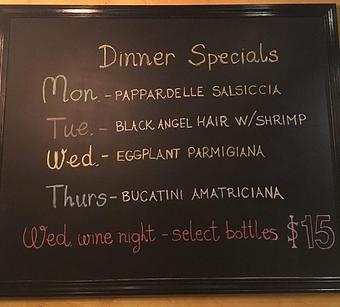 Dinner Specials
Mon. - PAPPARDELLE SALSICCIA
Tue. - BLACK ANGEL HAIR W/SHRIMP
Wed. - EGGPLANT PARMIGIANA
Thurs - BUCATINI AMATRICIANA
Wed. wine night - select bottles $15